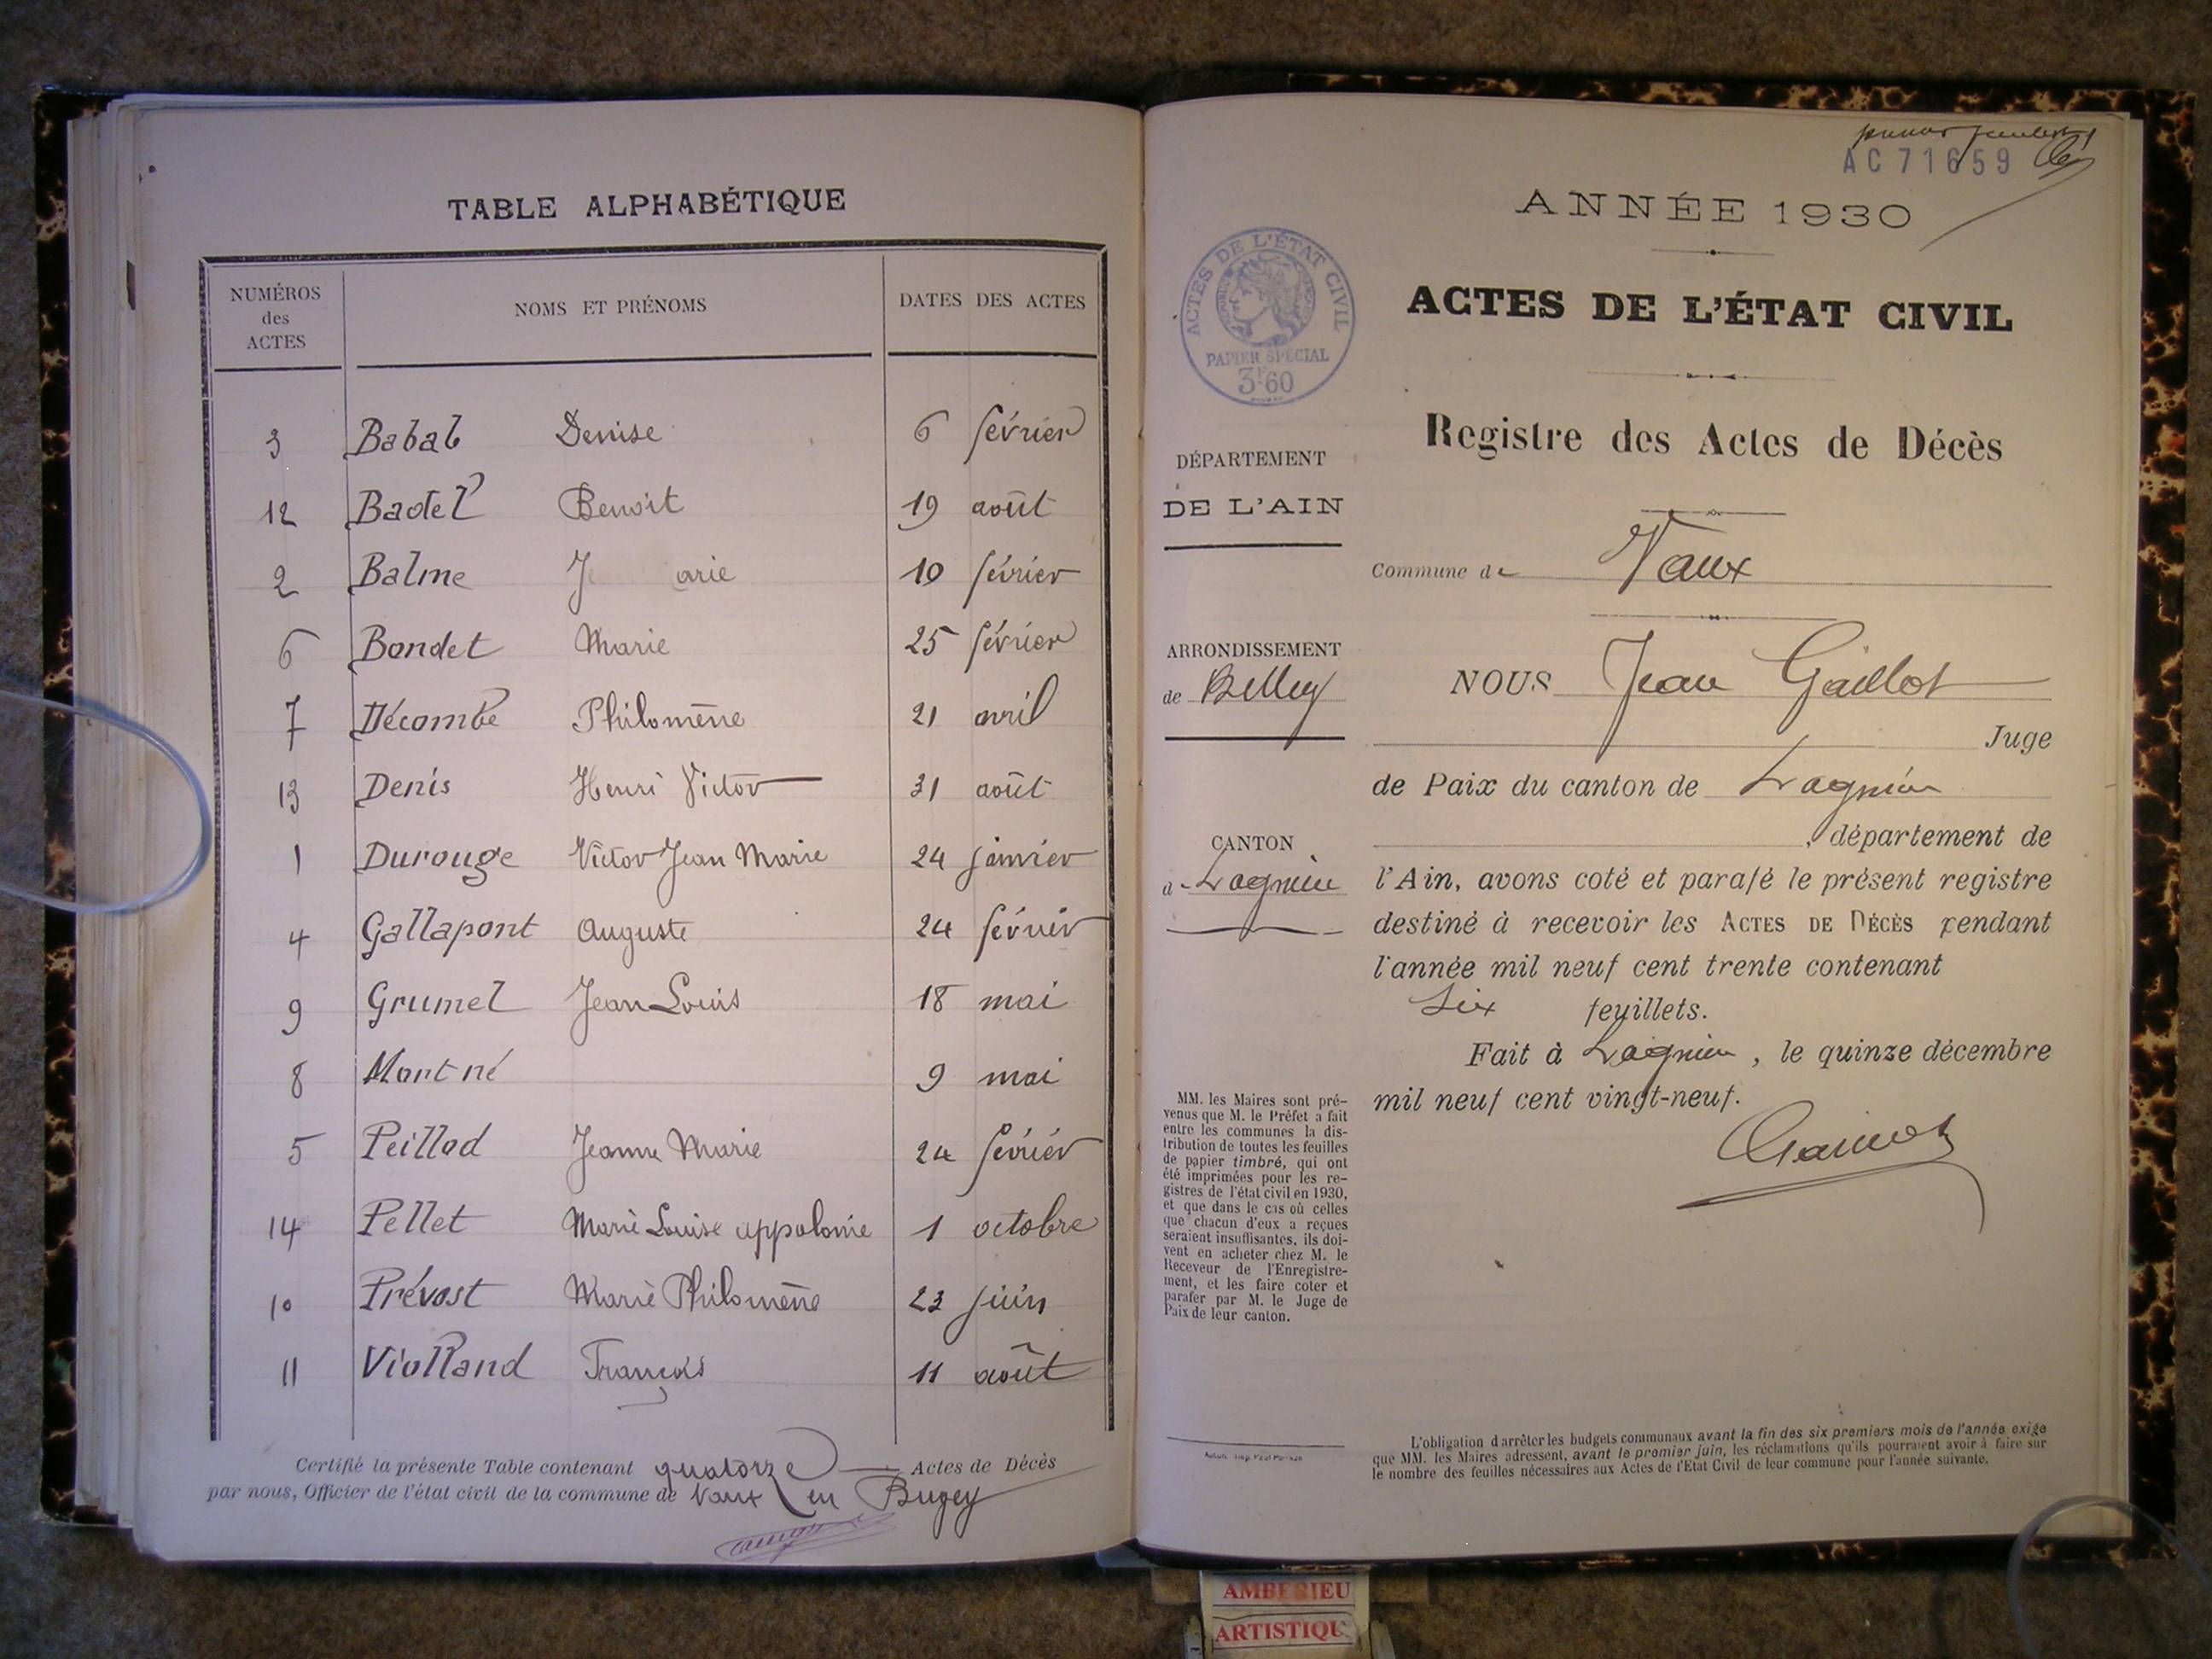 TABLE ALPHABÉTIQUE
NUMÉROS des ACTES NOMS ET PRÉNOMS DATES DES ACTES
3 Babab Denise 6 février
12 Badel Benoit 19 août
2 Balme 10 février
6 Bondet Marie 25 février
7 Décombe Philomène 21 avril
13 Denis Henri Victor 31 août
1 Durouge Victor Jean Marie 24 janvier
4 Gallapont Auguste 24 février
9 Grumel Jean Louis 18 mai
8 Mort né 9 mai
5 Peillod Jeanne Marie 24 février
14 Pellet Marie Louise appolonie 1 octobre
10 Prévost Marie Philomène 23 juin
11 Violland François 11 août
Certifié la présente Table contenant quatorze Actes de Décès
par nous, Officier de l'état civil de la commune de Vaux en Bugey
premier feuillet
AC 71659
ANNÉE 1930
ACTES DE L'ÉTAT CIVIL
Registre des Actes de Décès
Commune de Vaux
NOUS Jean Gaillot
Juge
de Paix du canton de Lagnieu
, département de
l'Ain, avons coté et parafé le présent registre
destiné à recevoir les ACTES DE DÉCÈS pendant
l'année mil neuf cent trente contenant
six feuillets.
Fait à Lagnieu, le quinze décembre
mil neuf cent vingt-neuf.
L'obligation d'arrêter les budgets communaux avant la fin des six premiers mois de l'année exige
que MM. les Maires adressent, avant le premier juin, les réclamations qu'ils pourraient avoir à faire sur
le nombre des feuilles nécessaires aux Actes de l'État Civil de leur commune pour l'année suivante.
ACTES DE L'ÉTAT CIVIL
PAPIER SPÉCIAL
3F60
DÉPARTEMENT
DE L'AIN
ARRONDISSEMENT
de Belley
CANTON
de Lagnieu
MM. les Maires sont pré-
venus que M. le Préfet a fait
entre les communes la dis-
tribution de toutes les feuilles
de papier timbré, qui ont
été imprimées pour les re-
gistres de l'état civil en 1930,
et que dans le cas où celles
que chacun d'eux a reçues
seraient insuffisantes, ils doi-
vent en acheter chez M. le
Receveur de l'Enregistre-
ment, et les faire coter et
parafer par M. le Juge de
Paix de leur canton.
AMBERIEU
ARTISTIQU